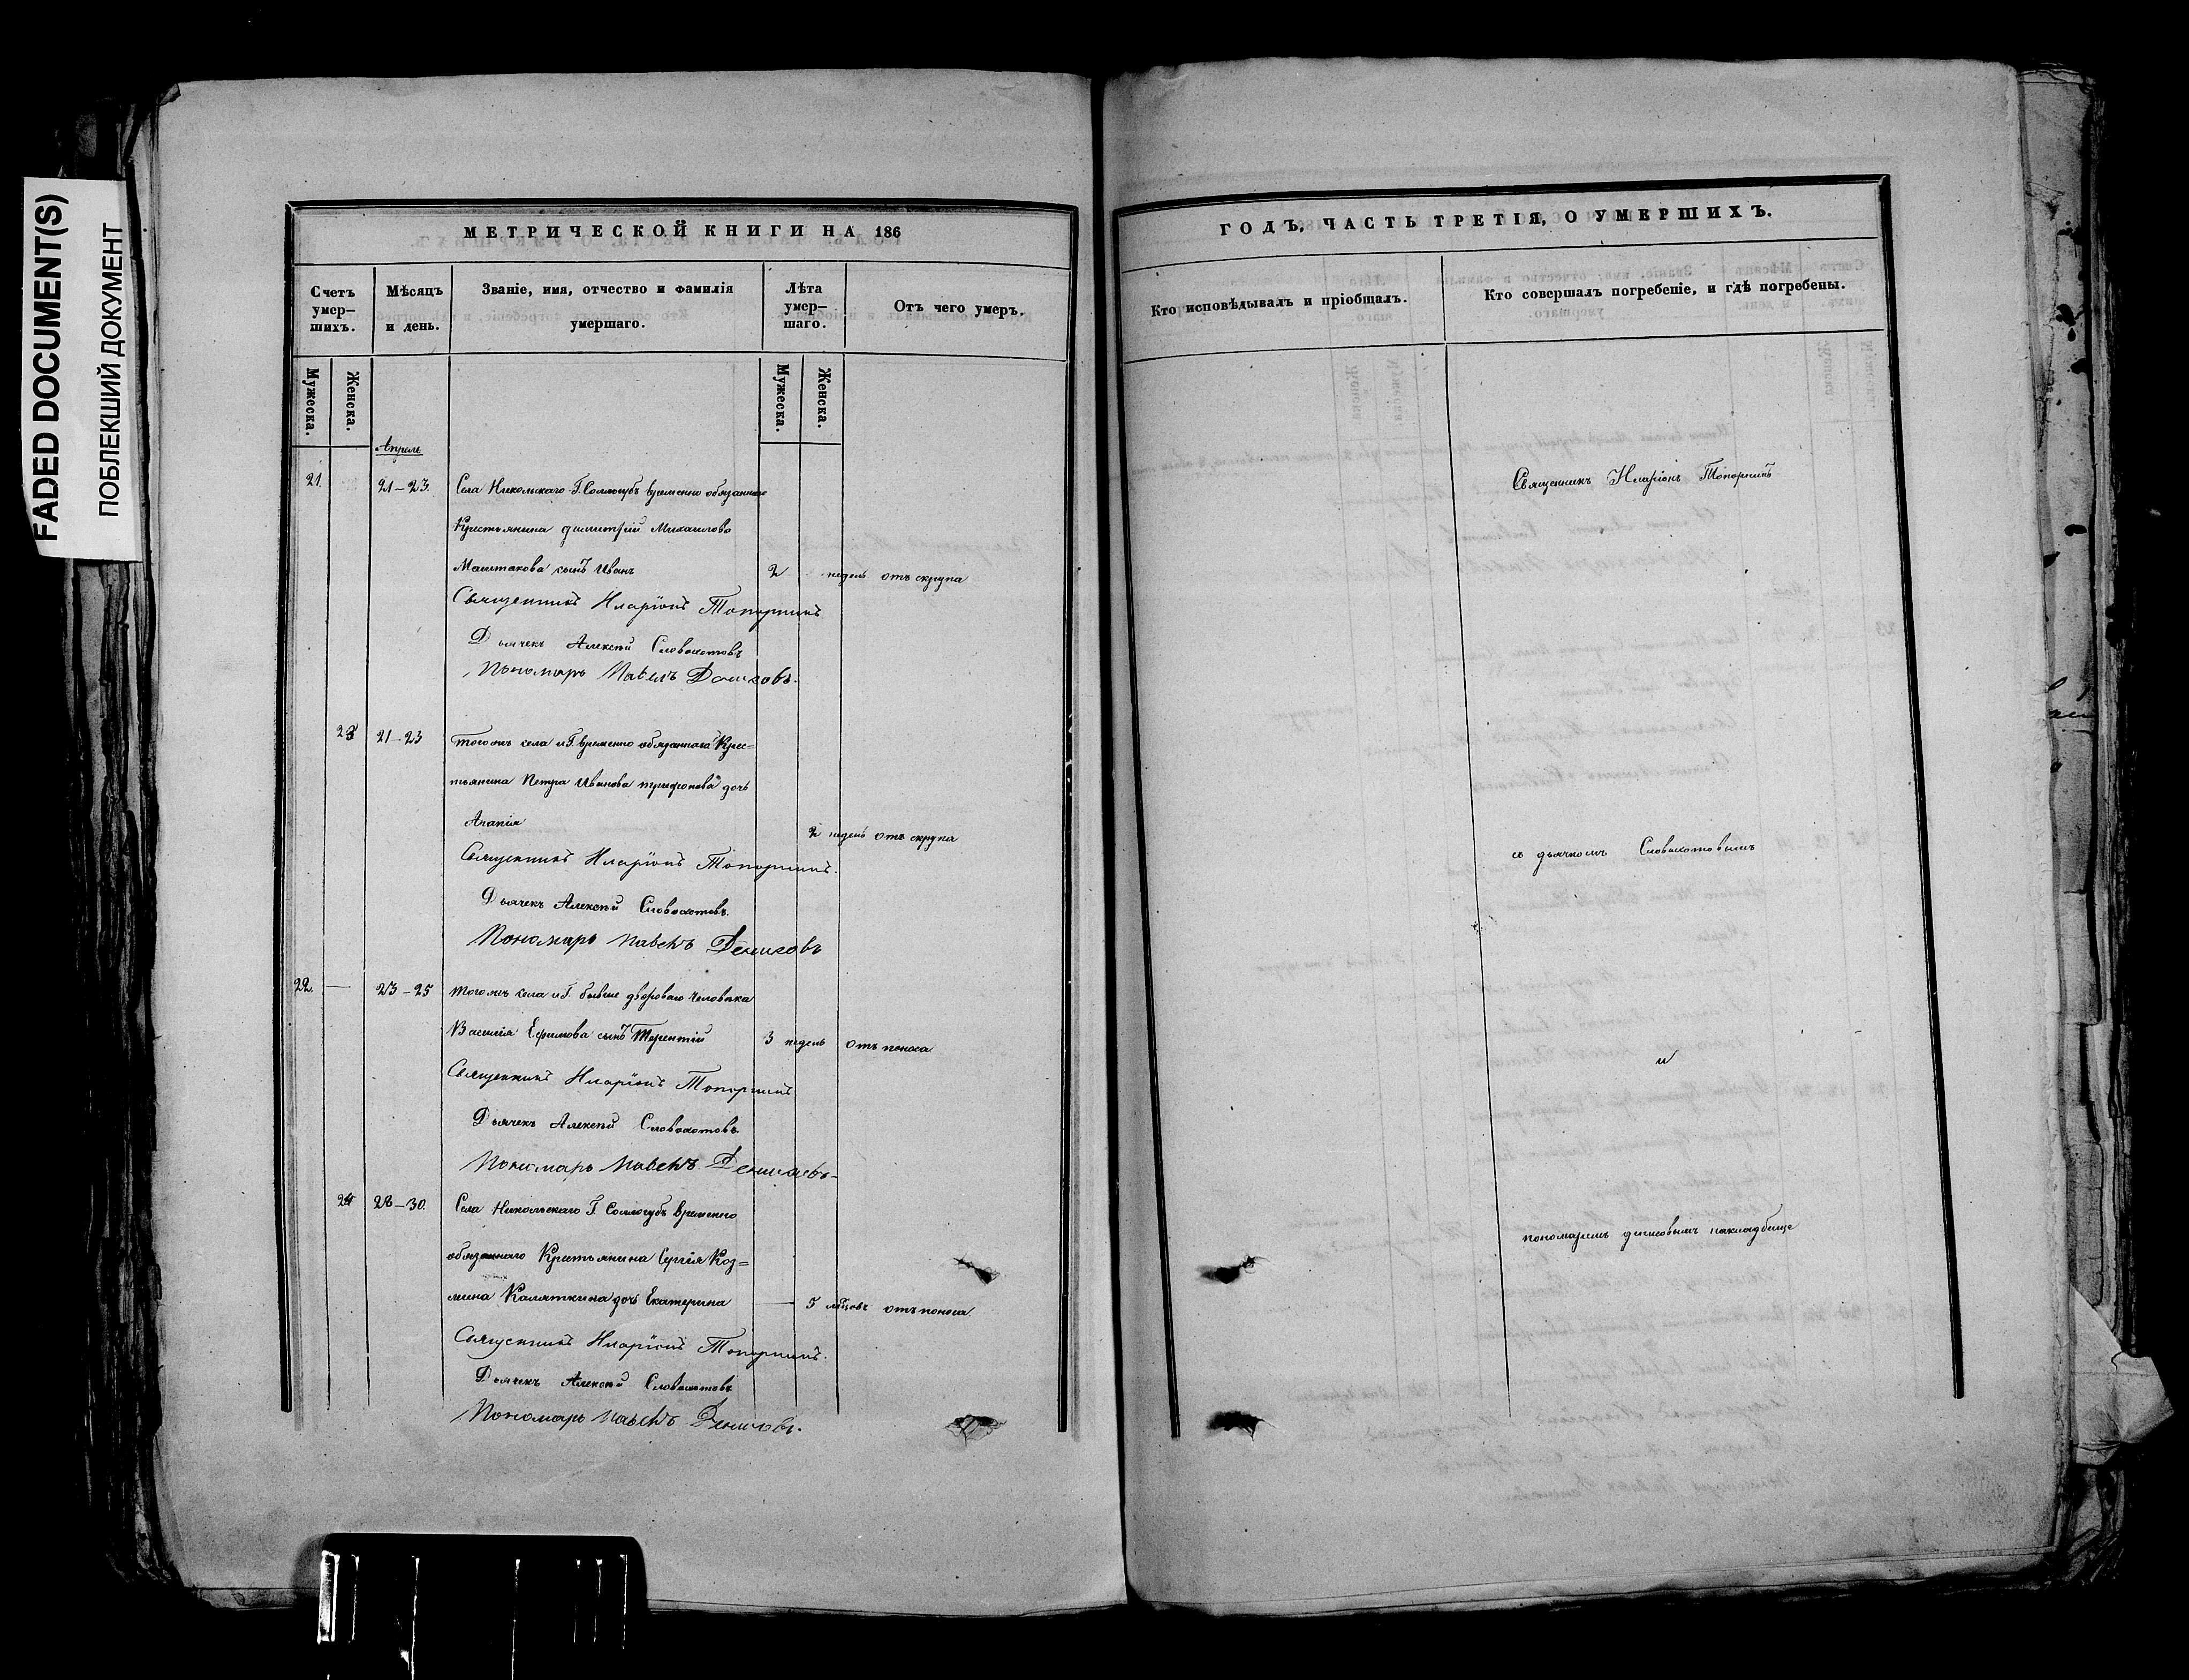 FADED DOCUMENT(S)
ПОБЛЕКШИЙ ДОКУМЕНТ
МЕТРИЧЕСКОЙ КНИГИ НА 186
Счетъ умер–шихъ.
Мѣсяцъ и день.
Званіе, имя, отчество и фамилія умершаго.
Лѣта умер–шаго.
Отъ чего умеръ.
Мужеска.
Женска.
Мужеска.
Женска.
Апрель
21. 21–23. Села Никольскаго Г. Соллогубъ временно обязаннаго
Крестьянина Димитрій Михаилова
Маштакова сынъ Иванъ 2 недель отъ скрупа
Священникъ Иларіонъ Топорнинъ
Дьячекъ Алексѣй Словохотовъ
Пономарь Павелъ Денисовъ.
23 21–23 Тогожъ села и Г. временно обязаннаго Крес=
тьянина Петра Иванова Трифонова дочь
Агапія 2 недель отъ скрупа
Священникъ Иларіонъ Топорнинъ.
Дьячекъ Алексѣй Словохотовъ.
Пономарь Павелъ Денисовъ
22. — 23–25 Тогожъ села и Г. бывше двороваго человѣка
Василія Ефимова сынъ Терентій 3 недель отъ поноса
Священникъ Иларіонъ Топорнинъ
Дьячекъ Алексѣй Словохотовъ.
Пономарь Павелъ Денисовъ.
24 28–30. Села Никольскаго Г. Соллогубъ временно
обязаннаго Крестьянина Сергія Коз=
мина Каляткина дочь Екатерина — 5 мѣсцовъ отъ поноса.
Священникъ Иларіонъ Топорнинъ.
Дьячекъ Алексѣй Словохотовъ
Пономарь Павелъ Денисовъ.
ГОДЪ, ЧАСТЬ ТРЕТІЯ, О УМЕРШИХЪ.
Кто исповѣдывалъ и пріобщалъ.
Кто совершалъ погребеніе, и гдѣ погребены.
Священникъ Иларіонъ Топорнинъ
съ дьячкомъ Словохотовымъ
и
пономаремъ Денисовымъ накладбище